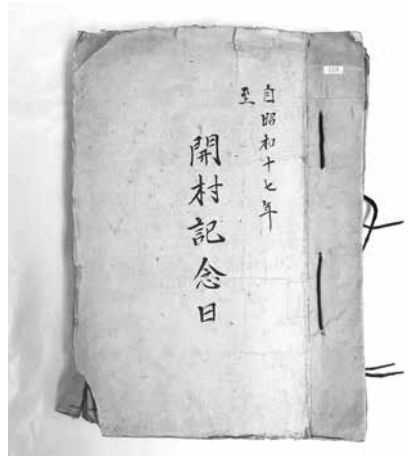 自昭和十七年
至
開村記念日